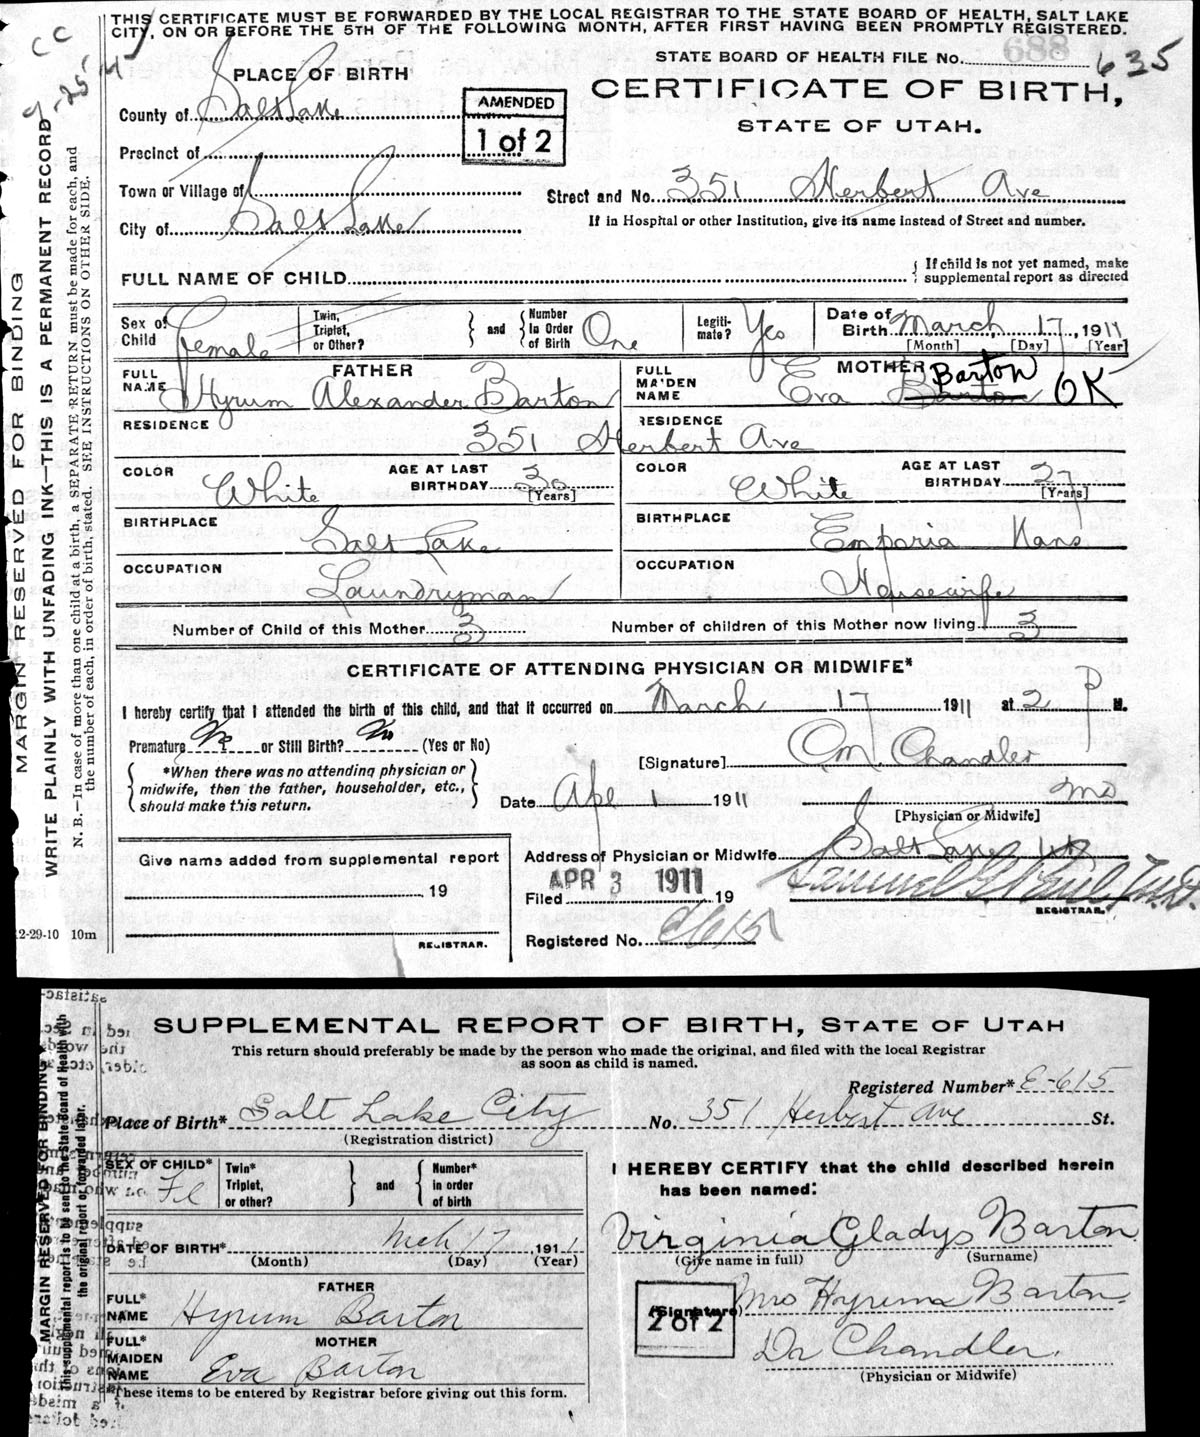 THIS CERTIFICATE MUST BE FORWARDED BY THE LOCAL REGISTRAR TO THE STATE BOARD OF HEALTH, SALT LAKE
CITY, ON OR BEFORE THE 5TH OF THE FOLLOWING MONTH, AFTER FIRST HAVING BEEN PROMPTLY REGISTERED.
CC
9-25-45
688
STATE BOARD OF HEALTH FILE No. 635
PLACE OF BIRTH
CERTIFICATE OF BIRTH,
STATE OF UTAH.
AMENDED
1 of 2
County of Salt Lake
Precinct of
Town or Village of
Street and No. 351 Herbert Ave
City of Salt Lake
If in Hospital or other Institution, give its name instead of Street and number.
FULL NAME OF CHILD
{ If child is not yet named, make
supplemental report as directed
Sex of Child Female
Twin, Triplet, or Other? } and { Number in Order of Birth One
Legiti-mate? Yes
Date of Birth March 17, 1911
[Month] [Day] [Year]
FATHER
FULL NAME Hyrum Alexander Barton
MOTHER
FULL MAIDEN NAME Eva Barton Barton OK
RESIDENCE 351 Herbert Ave
RESIDENCE
COLOR White AGE AT LAST BIRTHDAY 30 [Years]
COLOR White AGE AT LAST BIRTHDAY 27 [Years]
BIRTHPLACE Salt Lake
BIRTHPLACE Emporia Kans
OCCUPATION Laundryman
OCCUPATION Housewife
Number of Child of this Mother 3
Number of children of this Mother now living 3
CERTIFICATE OF ATTENDING PHYSICIAN OR MIDWIFE*
I hereby certify that I attended the birth of this child, and that it occurred on March 17 1911 at 2 P M.
Premature No or Still Birth? No (Yes or No)
[Signature] C.M. Chandler
{ *When there was no attending physician or
midwife, then the father, householder, etc.,
should make this return. }
Date Apl 1 1911 MD
[Physician or Midwife]
Give name added from supplemental report
19
REGISTRAR.
Address of Physician or Midwife Salt Lake Ut
APR 3 1911
Filed 19
REGISTRAR.
Registered No. E615
12-29-10 10m
MARGIN RESERVED FOR BINDING
WRITE PLAINLY WITH UNFADING INK—THIS IS A PERMANENT RECORD
N. B.—In case of more than one child at a birth, a SEPARATE RETURN must be made for each, and
the number of each, in order of birth, stated. SEE INSTRUCTIONS ON OTHER SIDE.
SUPPLEMENTAL REPORT OF BIRTH, STATE OF UTAH
This return should preferably be made by the person who made the original, and filed with the local Registrar
as soon as child is named.
Registered Number* E-615
Place of Birth* Salt Lake City No. 351 Herbert Ave St.
(Registration district)
SEX OF CHILD* Fl
Twin* Triplet, or other? } and { Number* in order of birth
I HEREBY CERTIFY that the child described herein
has been named:
DATE OF BIRTH* Mch 17 1911
(Month) (Day) (Year)
Virginia Gladys Barton
(Give name in full) (Surname)
FATHER
FULL* NAME Hyrum Barton
(Signature) Mrs Hyrum Barton
2 of 2
MOTHER
FULL* MAIDEN NAME Eva Barton
Dr Chandler.
(Physician or Midwife)
*These items to be entered by Registrar before giving out this form.
MARGIN RESERVED FOR BINDING
This supplemental report is to be sent to the State Board of Health with
the original report or forwarded later.